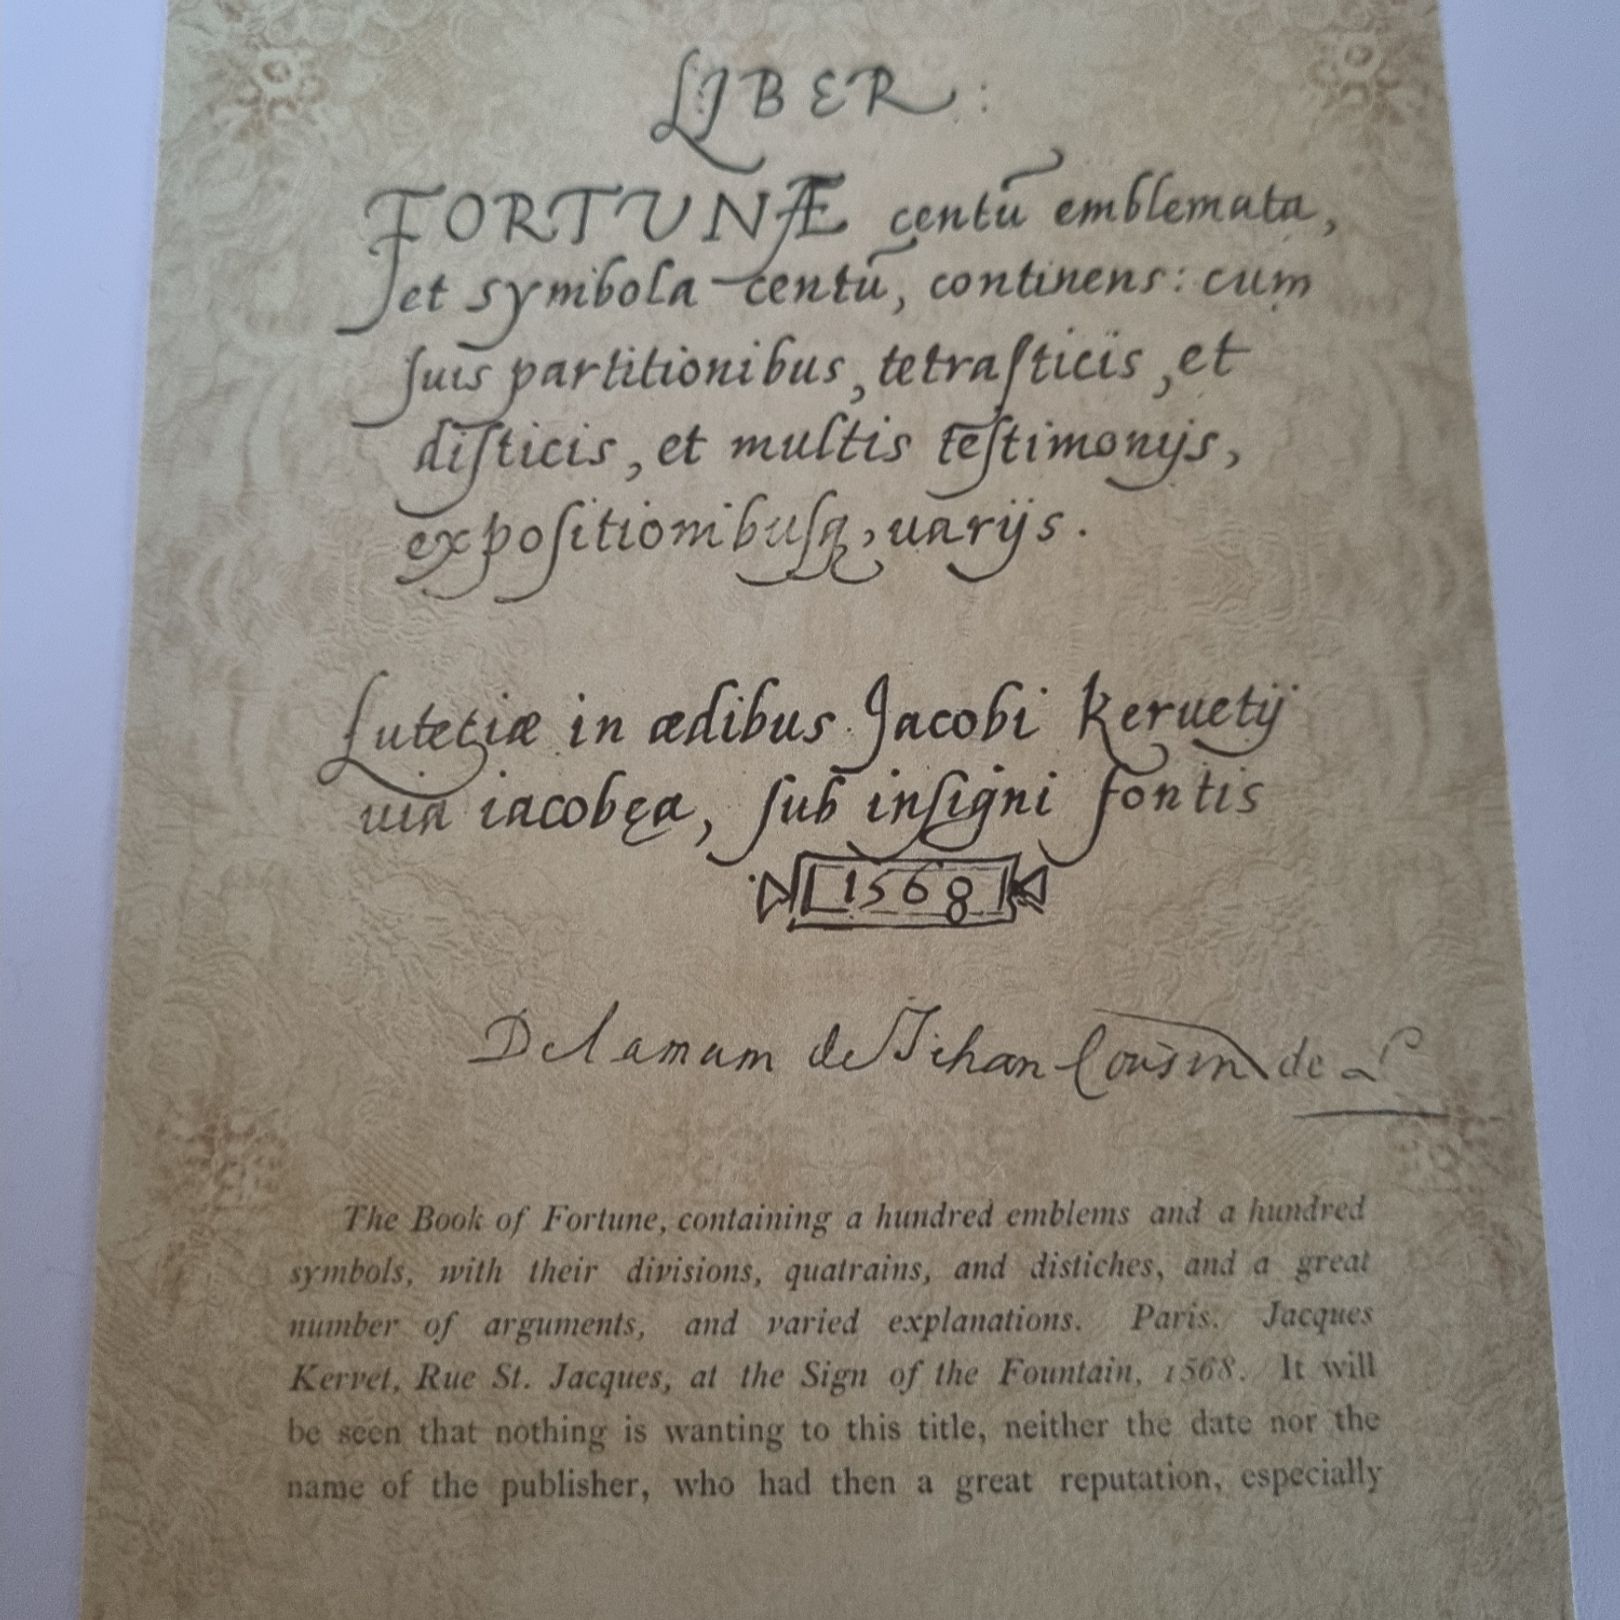 LIBER :
FORTUNÆ centū emblemata,
et symbola centū, continens: cum
ſuis partitionibus, tetraſticis, et
diſticis, et multis teſtimonijs,
expoſitionibuſq, uarijs.
Lutetiæ in ædibus Jacobi Keruetij
uia iacobęa, ſub inſigni fontis
1568
De la mam de Jehan Cousin de L
The Book of Fortune, containing a hundred emblems and a hundred
symbols, with their divisions, quatrains, and distiches, and a great
number of arguments, and varied explanations. Paris. Jacques
Kervet, Rue St. Jacques, at the Sign of the Fountain, 1568. It will
be seen that nothing is wanting to this title, neither the date nor the
name of the publisher, who had then a great reputation, especially